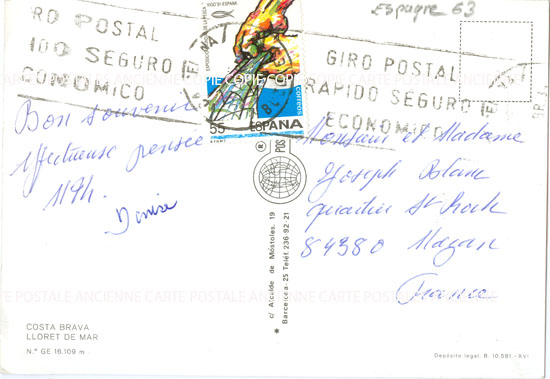 Espagne 63
RO POSTAL
IDO SEGURO
CONOMICO
GIRO POSTAL
RAPIDO SEGURO
ECONOMICO
55 ESPAÑA
CORREOS
Bon souvenir
affectueuse pensée
Denise
Monsieur et Madame
Joseph
quartier St Roch
84380 Mazan
France
c/ Alcalde de Móstoles, 19
Barcelona-25 Teléf. 236-92-21
CARTE POSTALE ANCIENNE CARTE POSTALE ANCIENNE
COSTA BRAVA
LLORET DE MAR
N.º GE 16.109 m
Depósito legal. B. 10.581 - XVI